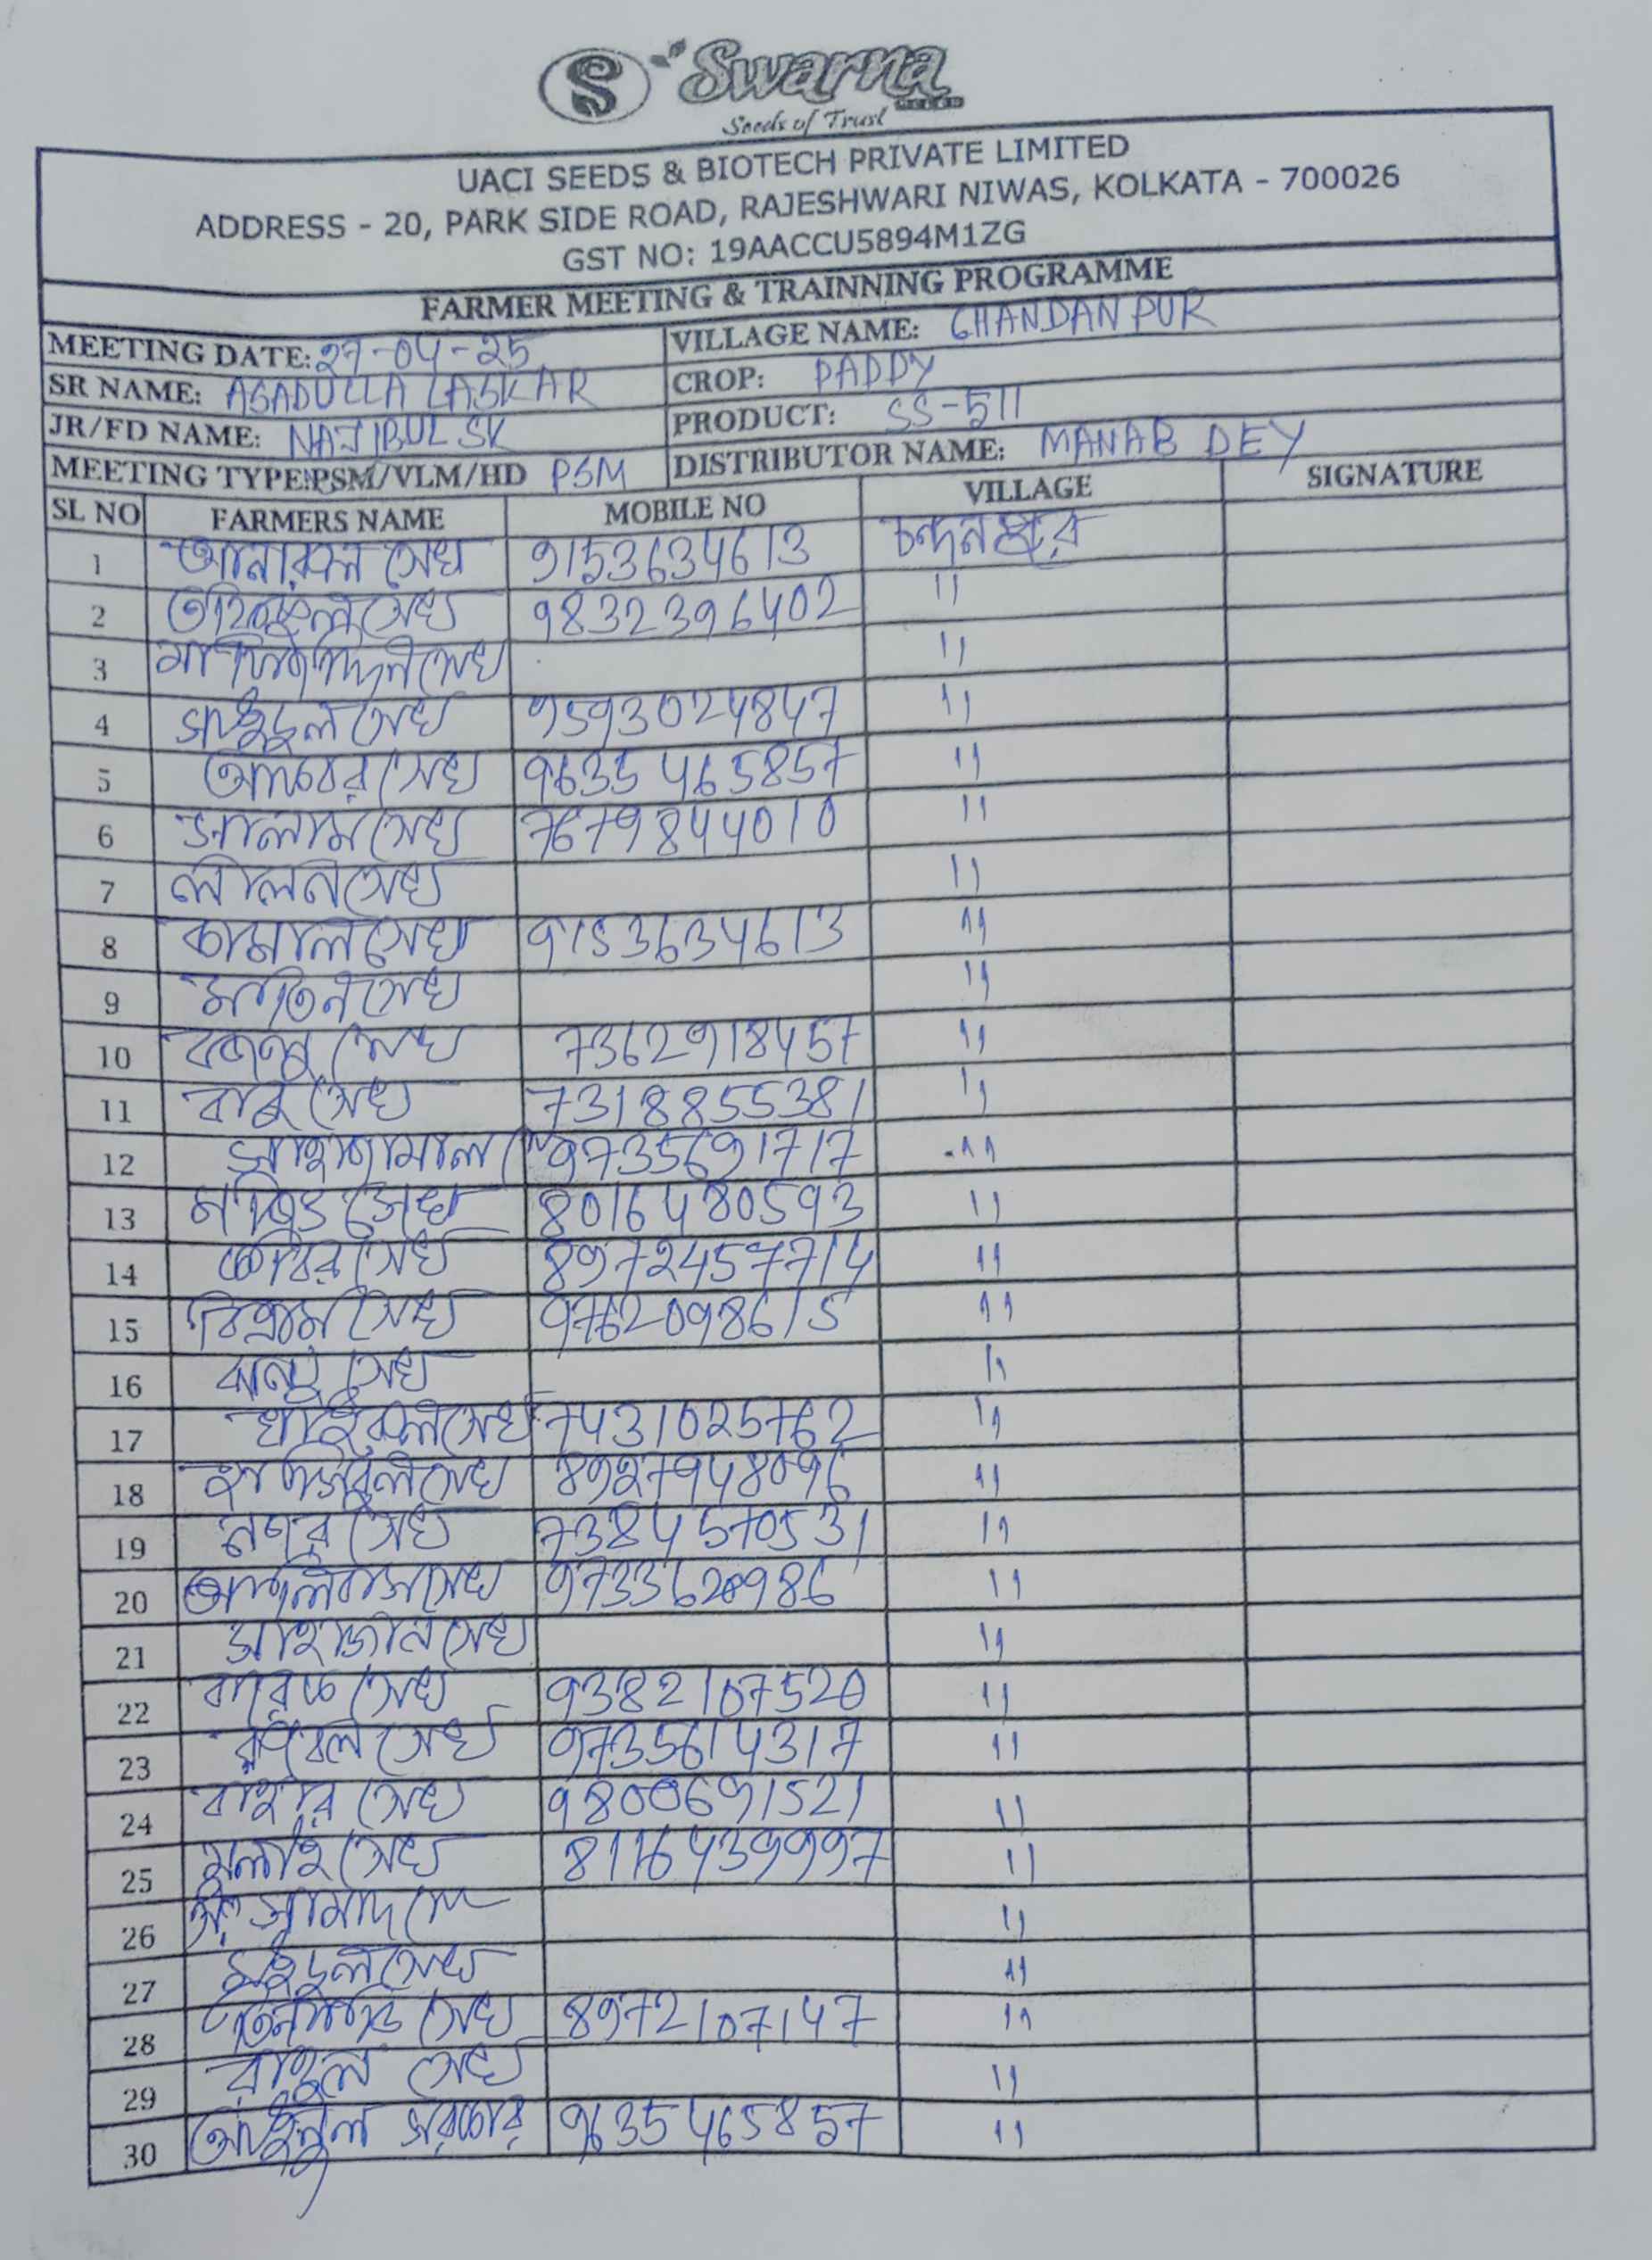 S Swarna
Seeds of Trust
UACI SEEDS & BIOTECH PRIVATE LIMITED
ADDRESS - 20, PARK SIDE ROAD, RAJESHWARI NIWAS, KOLKATA - 700026
GST NO: 19AACCU5894M1ZG
FARMER MEETING & TRAINNING PROGRAMME
MEETING DATE: 27-04-25 VILLAGE NAME: CHANDANPUR
SR NAME: ASADULLA LASKAR CROP: PADDY
JR/FD NAME: NAJIBUL SK PRODUCT: SS-511
MEETING TYPE:PSM/VLM/HD PSM DISTRIBUTOR NAME: MANAB DEY
SL NO FARMERS NAME MOBILE NO VILLAGE SIGNATURE
1 আনারুল সেখ 9153634613 চন্দনপুর
2 সেখ 9832396402 11
3 সেখ 11
4 সাইদুল সেখ 9593024847 11
5 সেখ 9635465857 11
6 সালাম সেখ 7679844010 11
7 লালন সেখ 11
8 কামাল সেখ 9153634613 11
9 মতিন সেখ 11
10 সেখ 7362918457 11
11 বাবু সেখ 7318855381 11
12 সাহাজামাল সে 9735691717 11
13 সেখ 8016480593 11
14 সেখ 8972457714 11
15 বিশ্রাম সেখ 9762098615 11
16 সেখ 11
17 খাইরুল সেখ 7431025762 11
18 সেখ 8927948096 11
19 সেখ 7384570531 11
20 সেখ 973362 986 11
21 সাহাজান সেখ 11
22 সেখ 9382107520 11
23 সেখ 9735614317 11
24 বাহার সেখ 9800691521 11
25 সেখ 8116439997 11
26 সামাদ সে 11
27 সেখ 11
28 তিনকড়ি সেখ 8972107147 11
29 রাহুল সেখ 11
30 সরকার 9635465857 11